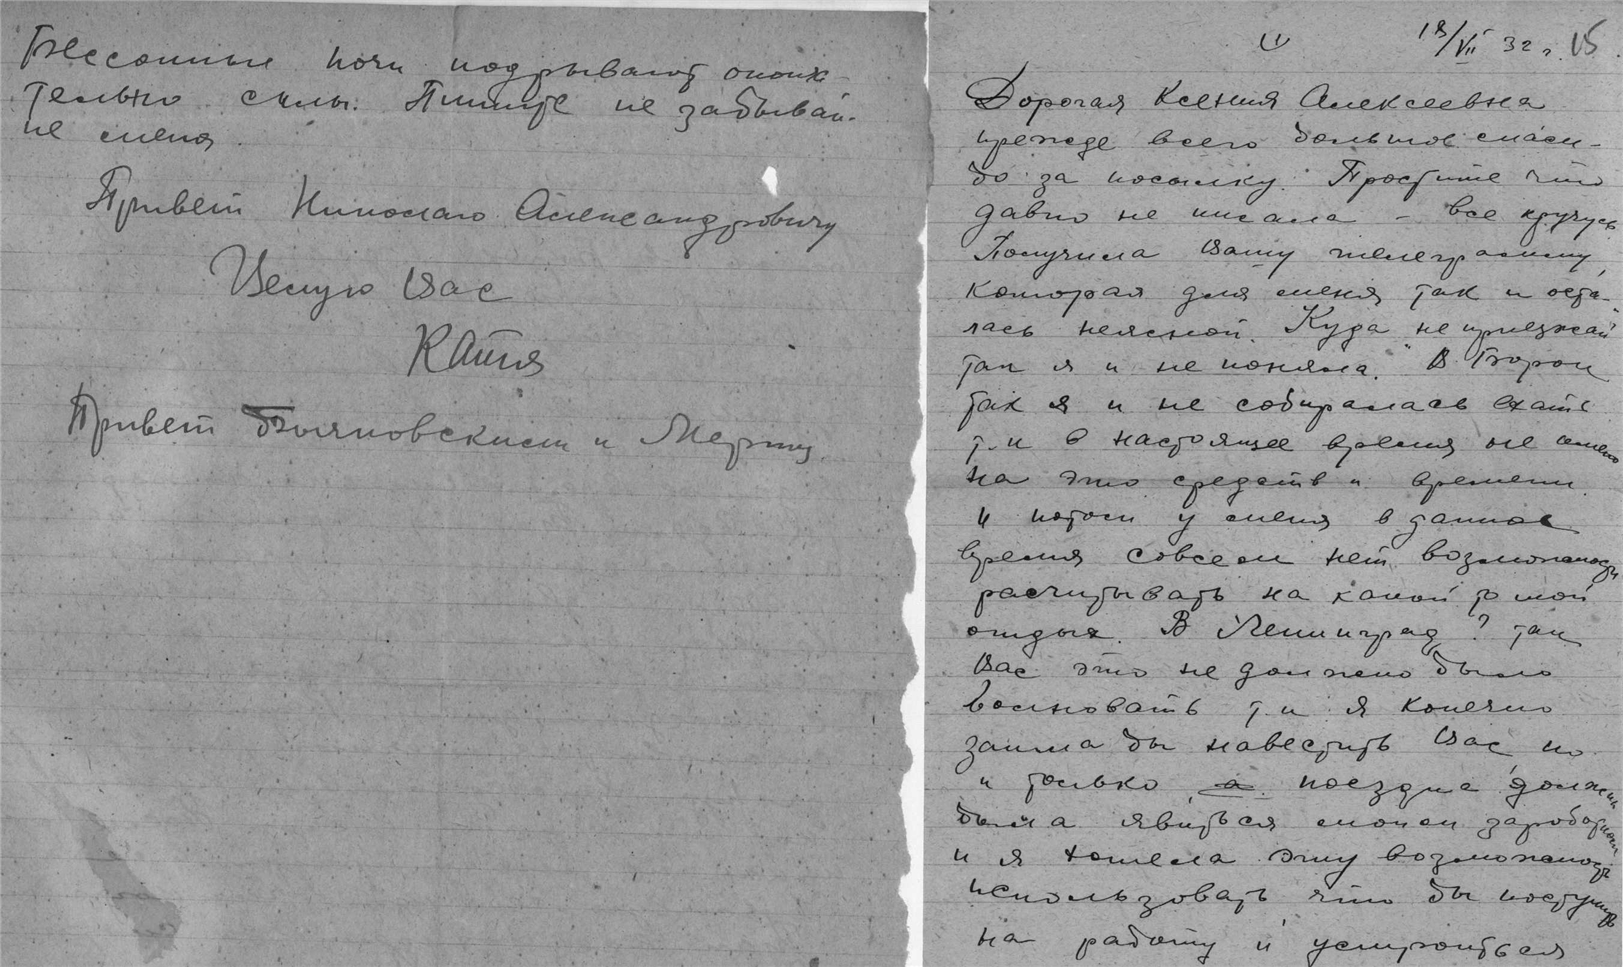 Бессонные ночи подрывают оконча-
тельно силы. Пишите не забывай-
те меня.
Привет Николаю Александровичу
Целую Вас
Катя
Привет Бояновским и Мерту.
(1
18/VII 32 г. 15
Дорогая Ксения Алексеевна
прежде всего большое спаси-
бо за посылку. Простите что
давно не писала – все кручусь
Получила Вашу телеграмму,
которая для меня так и оста-
лась неясной. Куда "не приезжай"
так я и не поняла. В
так я и не собиралась ехать
т.к в настоящее время не имею
на это средств и времени.
И потом у меня в данное
время совсем нет возможности
расчитывать на какой то мой
отдых. В Ленинград? так
Вас это не должно было
волновать т.к я конечно
зашла бы навестить Вас но
и только, а поездка должна
была явиться моим заработком
и я хотела эту возможность
использовать что бы поступить
на работу и устроиться